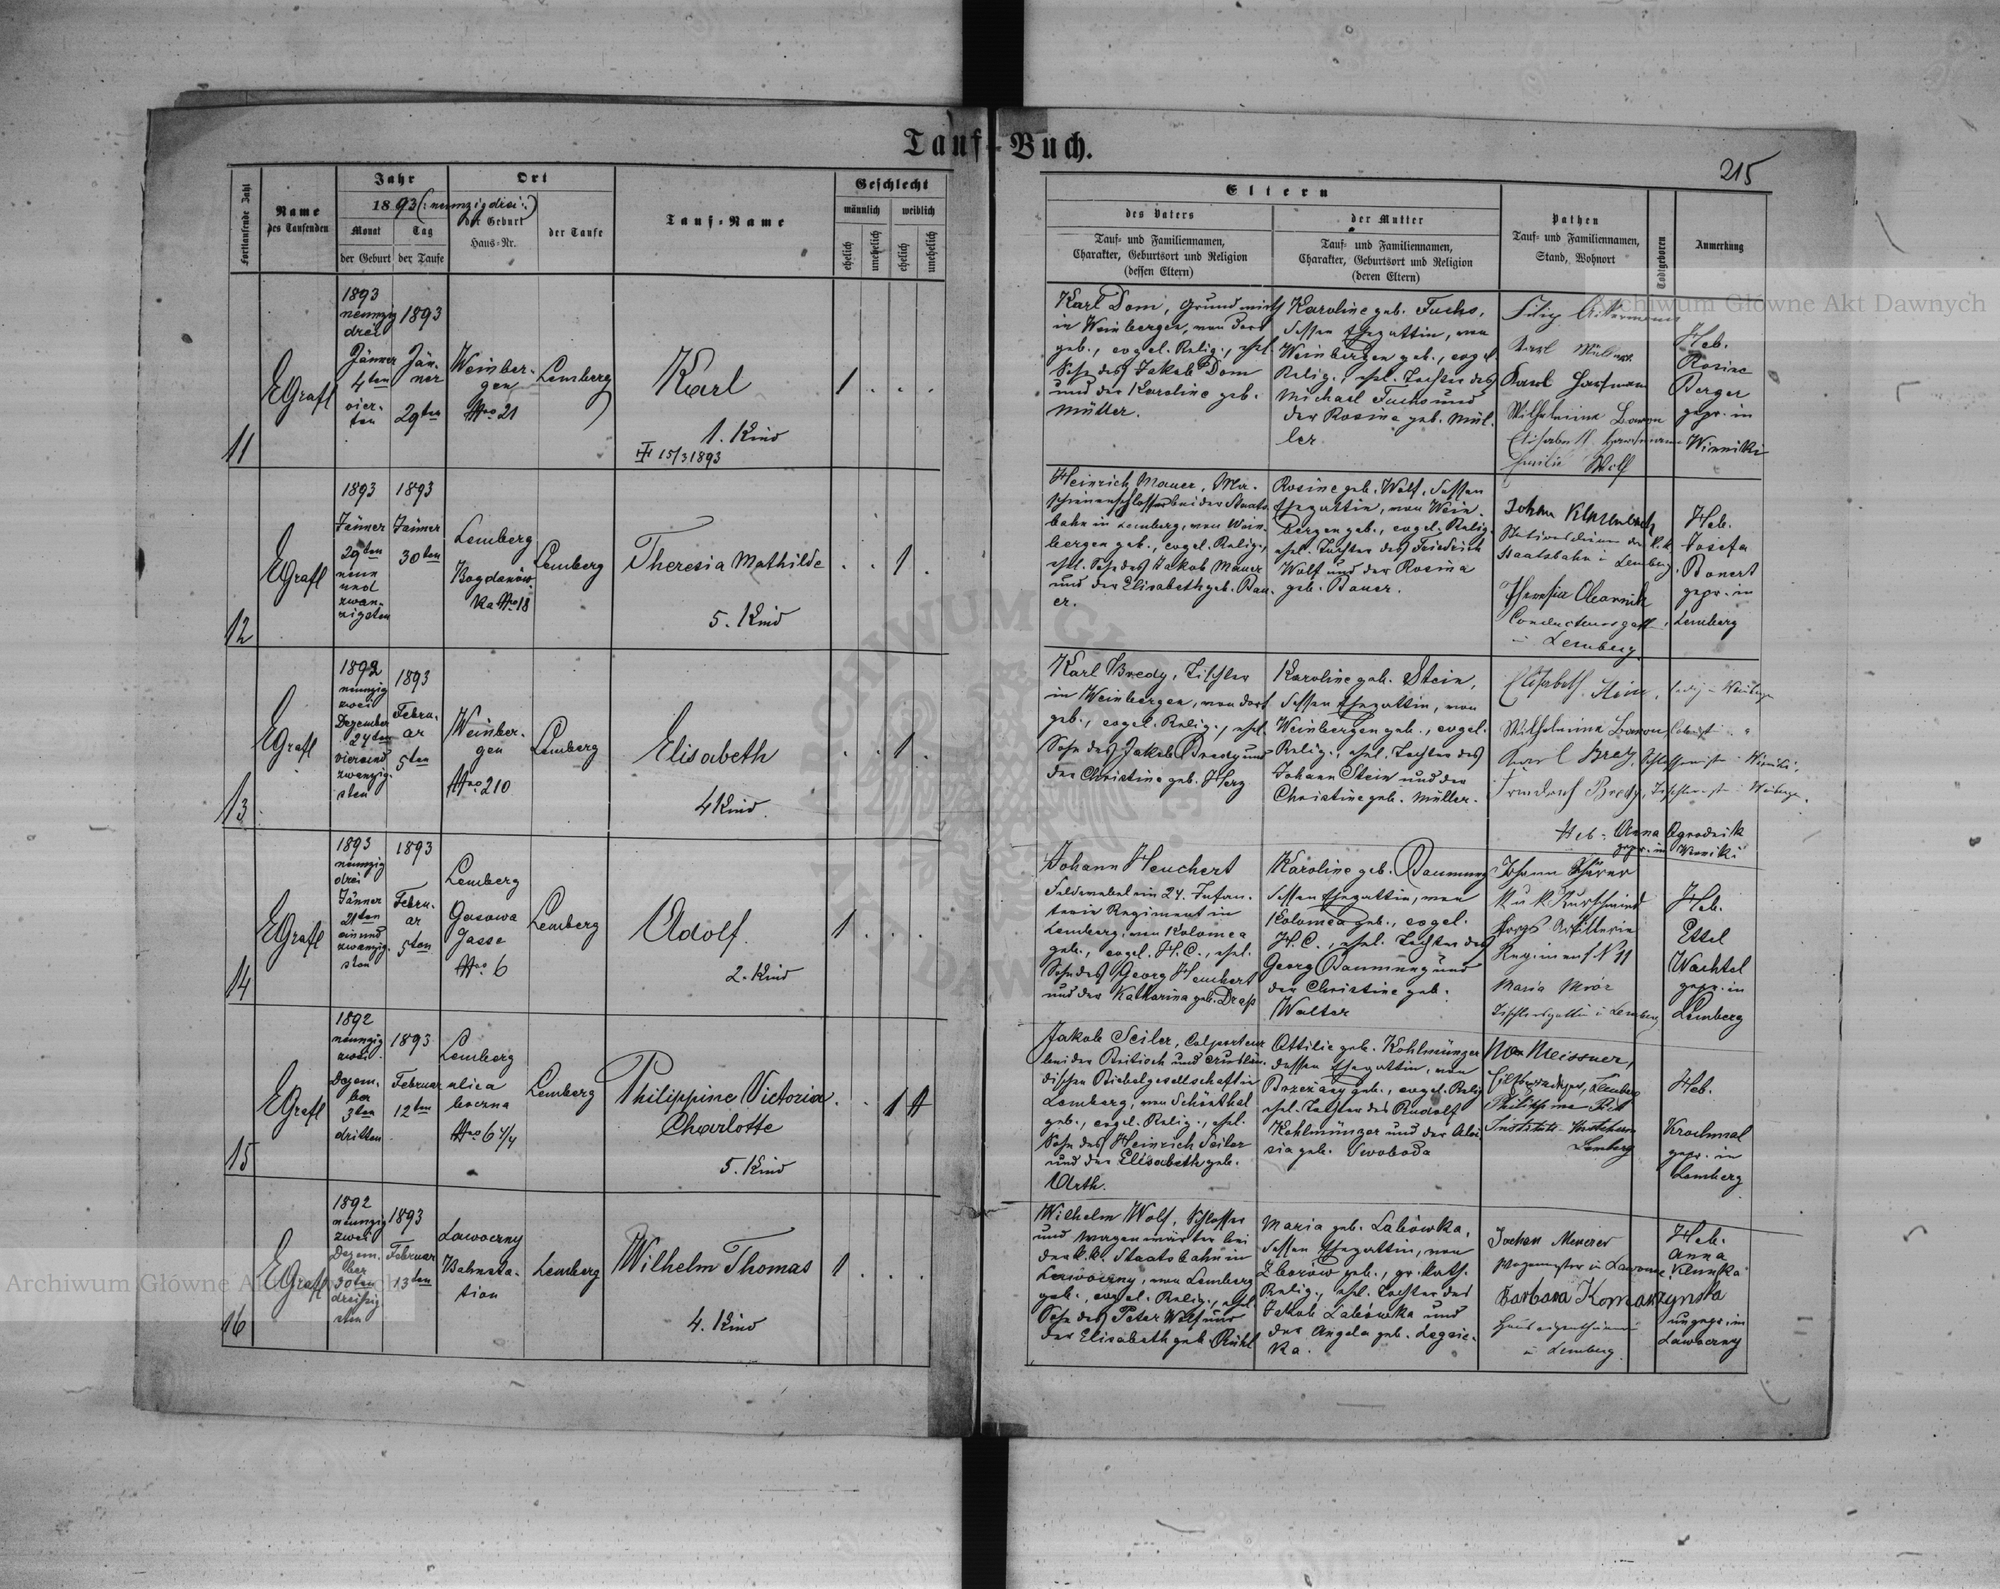 Tauf-Buch.
215
Fortlaufende Zahl
Name
des Taufenden
Jahr
1893 (: neunzigdrei :)
Monat
Tag
der Geburt
der Taufe
Ort
der Geburt
Haus-Nr.
der Taufe
Tauf-Name
Geschlecht
männlich
weiblich
ehelich
unehelich
ehelich
unehelich
Eltern
des Vaters
Tauf- und Familiennamen,
Charakter, Geburtsort und Religion
(dessen Eltern)
der Mutter
Tauf- und Familiennamen,
Charakter, Geburtsort und Religion
(deren Eltern)
Pathen
Tauf- und Familiennamen,
Stand, Wohnort
Todtgeboren
Anmerkung
11
EGrafl
1893
neunzig
drei
Jänner
4ten
vier-
ten
1893
Jän-
ner
29ten
Weinber-
gen
Nro 21
Lemberg
Karl
1. Kind
15/3 1893
1
Karl Dom, Grundwirth
in Weinbergen, von dort
geb., evgel. Relig., ehel.
Sohn des Jakob Dom
und der Karoline geb.
Müller.
Karoline geb. Fuchs,
dessen Ehegattin, von
Weinbergen geb., evgel.
Relig., ehel. Tochter des
Michael Fuchs und
der Rosina geb. Mül-
ler
Karl Müller
Wilhelmine
Emilie Wolf
Heb.
Rosine
Berger
gepr. in
Winniki
12
EGrafl
1893
Jänner
29ten
neun
und
zwan-
zigsten
1893
Jänner
30ten
Lemberg
Bogdanów-
ka Nro 18
Lemberg
Theresia Mathilde
5. Kind
1
Heinrich Mauer, Ma-
schinenschlosser bei der Staats-
bahn in Lemberg, von Wein-
bergen geb., evgel. Relig.,
ehel. Sohn des Jakob Mauer
und der Elisabeth geb. Bau-
er.
Rosine geb. Wolf, dessen
Ehegattin, von Wein-
bergen geb., evgel. Relig.
ehel. Tochter des Friedrich
Wolf und der Rosina
geb. Bauer.
Johann
Staatsbahn in Lemberg
Theresia
Conducteursgatt.
in Lemberg
Heb.
Josefa
Bonert
gepr. in
Lemberg
13
EGrafl
1892
neunzig
zwei
Dezember
24ten
vierund
zwanzig-
sten
1893
Febru-
ar
5ten
Weinber-
gen
Nro 210
Lemberg
Elisabeth
4 Kind
1
Karl Bredy, Tischler
in Weinbergen, von dort
geb., evgel. Relig., ehel.
Sohn des Jakob Bredy und
der Christine geb. Herz
Karoline geb. Stein,
dessen Ehegattin, von
Weinbergen geb., evgel.
Relig., ehel. Tochter des
Johann Stein und der
Christine geb. Müller.
Elisabeth Stein,
Wilhelmine
Karl
Bredy,
Heb. Anna Ogrodnik
gepr. in Winniki
14
EGrafl
1893
neunzig
drei
Jänner
21ten
einund
zwanzig-
sten
1893
Febru-
ar
5ten
Lemberg
Gasowa
Gasse
Nro 6
Lemberg
Adolf.
2. Kind
1
Johann Heuchert
Feldwebel ein 24. Infan-
terie Regiment in
Lemberg, von Kolomea
geb., evgel. H.C., ehel.
Sohn des Georg Heuchert
und der Katharina geb.
Karoline geb. Daumung
dessen Ehegattin, von
Kolomea geb., evgel.
H.C., ehel. Tochter des
Georg Daumung und
der Christine geb.
Walter
Johann
k u k Kurschmied
Regiment N 11
Maria
Tischlersgattin in Lemberg
Heb.
Ettel
Wachtel
gepr. in
Lemberg
15
EGrafl
1892
neunzig
zwei
Dezem-
ber
3ten
dritten
1893
Februar
12ten
Lemberg
ulica
boczna
Nro 6 y/4
Lemberg
Philippine Victoria
Charlotte
5. Kind
1
Jakob Seiler, Colporteur
bei der Britisch und auslän-
dischen Biebelgesellschaft in
Lemberg, von Schönthal
geb., evgel. Relig., ehel.
Sohn des Heinrich Seiler
und der Elisabeth geb.
Urth.
Attilie geb. Kohlmünzer
dessen Ehegattin, von
Brzeżany geb., evgel. Relig.
ehel. Tochter des Rudolf
Kohlmünzer und der Aloi-
sia geb. Swoboda
Meissner,
Lemberg
Philippine
Lemberg
Heb.
Krochmal
gepr. in
Lemberg
16
EGrafl
1892
neunzig
zwei
Dezem-
ber
30ten
dreißig
sten
1893
Februar
13ten
Lawoczny
Bahnsta-
tion
Lemberg
Wilhelm Thomas
4. Kind
1
Wilhelm Wolf, Schlosser
und Wagenwärter bei
der k.k. Staatsbahn in
Lawoczny, von Lemberg
geb., evgel. Relig., ehel.
Sohn des Peter Wolf und
der Elisabeth geb. Rühl
Maria geb. Labówka,
dessen Ehegattin, von
Zborów geb., gr. kath.
Relig., ehel. Tochter des
Jakob Labówka und
der Angela geb. Legaie-
ka.
Barbara Komarzynska
Hauseigenthümerin
in Lemberg.
Heb.
Anna
ungepr. in
Lawoczny
Archiwum Główne Akt Dawnych
Archiwum Główne Akt Dawnych